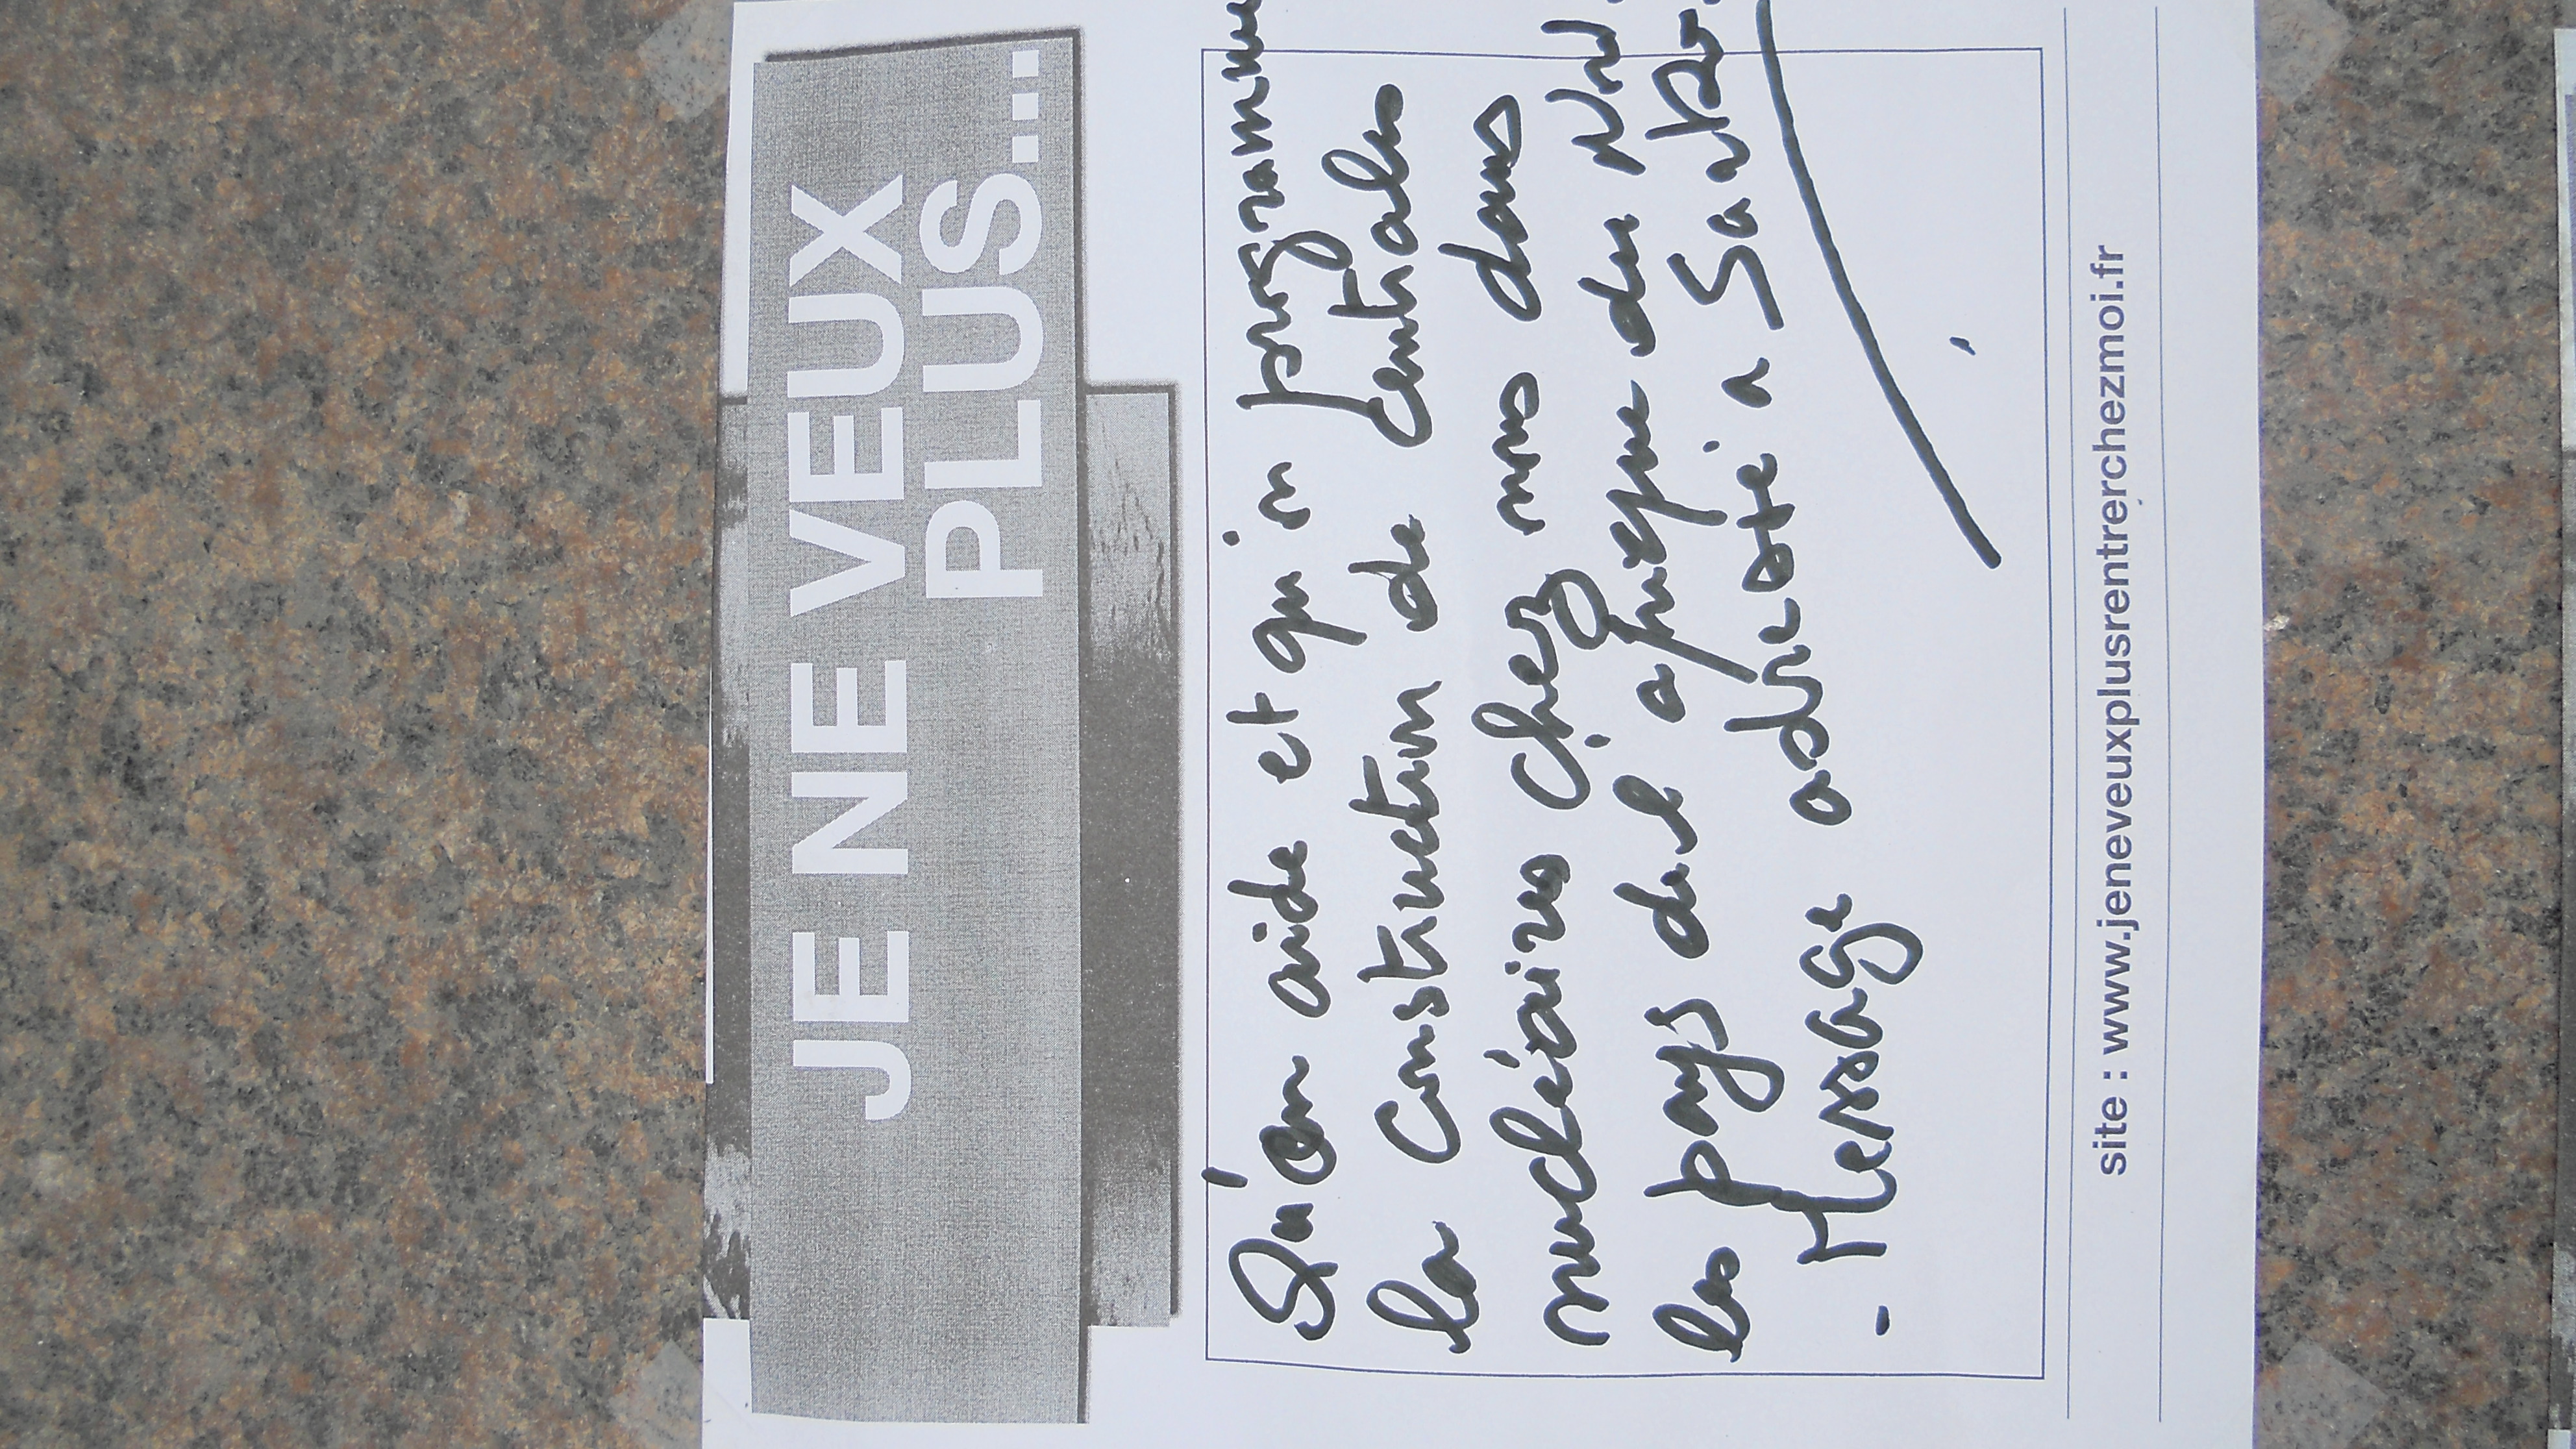 JE NE VEUX
PLUS...
Qu'on aide et qu'on programme
la Construction de Centrales
nucléaires chez nous dans
les pays de l'afrique du Nord.
- Message adressé à Sarkozy
site : www.jeneveuxplusrentrerchezmoi.fr